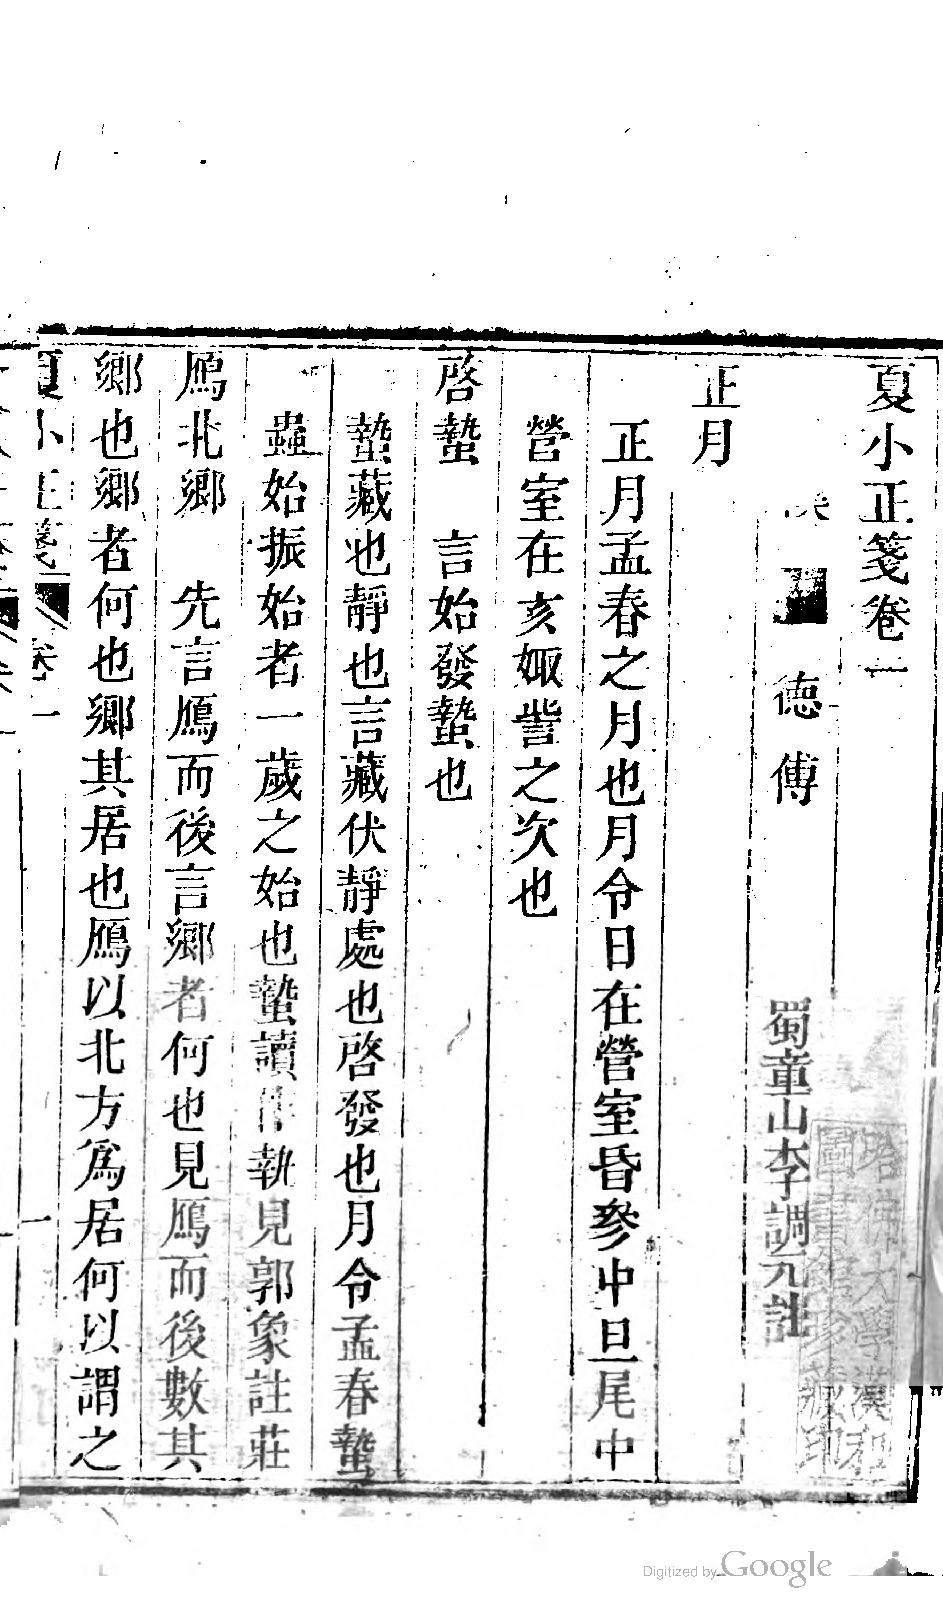 夏小正箋卷一
漢 德傅 蜀童山李調元註
正月
正月孟春之月也月令日在營室昏參中旦尾中
營室在亥娵訾之次也
啓蟄 言始發蟄也
蟄藏也靜也言藏伏靜處也啓發也月令孟春蟄
蟲始振始者一歲之始也蟄讀作執見郭象註莊
鴈北鄉 先言鴈而後言鄉者何也見鴈而後數其
鄉也鄉者何也鄉其居也鴈以北方爲居何以謂之
夏小正箋 卷一 一
哈佛大學漢和
圖書館珍藏印
Digitized by Google